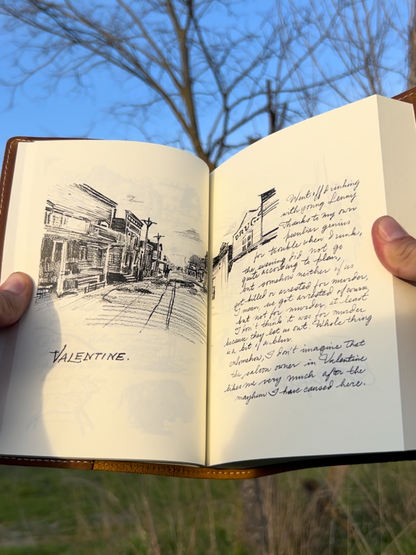 VALENTINE.
DRUGS
Went off drinking
with young Lenny
Thanks to my own
peculiar genius
for trouble when drunk,
the evening did not go
quite according to plan,
but somehow neither of us
got killed or arrested for murder,
I mean we got arrested of course,
but not for murder at least
I don't think it was for murder
because they let us out. Whole thing
is a bit of a blur.
Somehow, I don't imagine that
the saloon owner in Valentine
likes me very much after the
mayhem I have caused here.